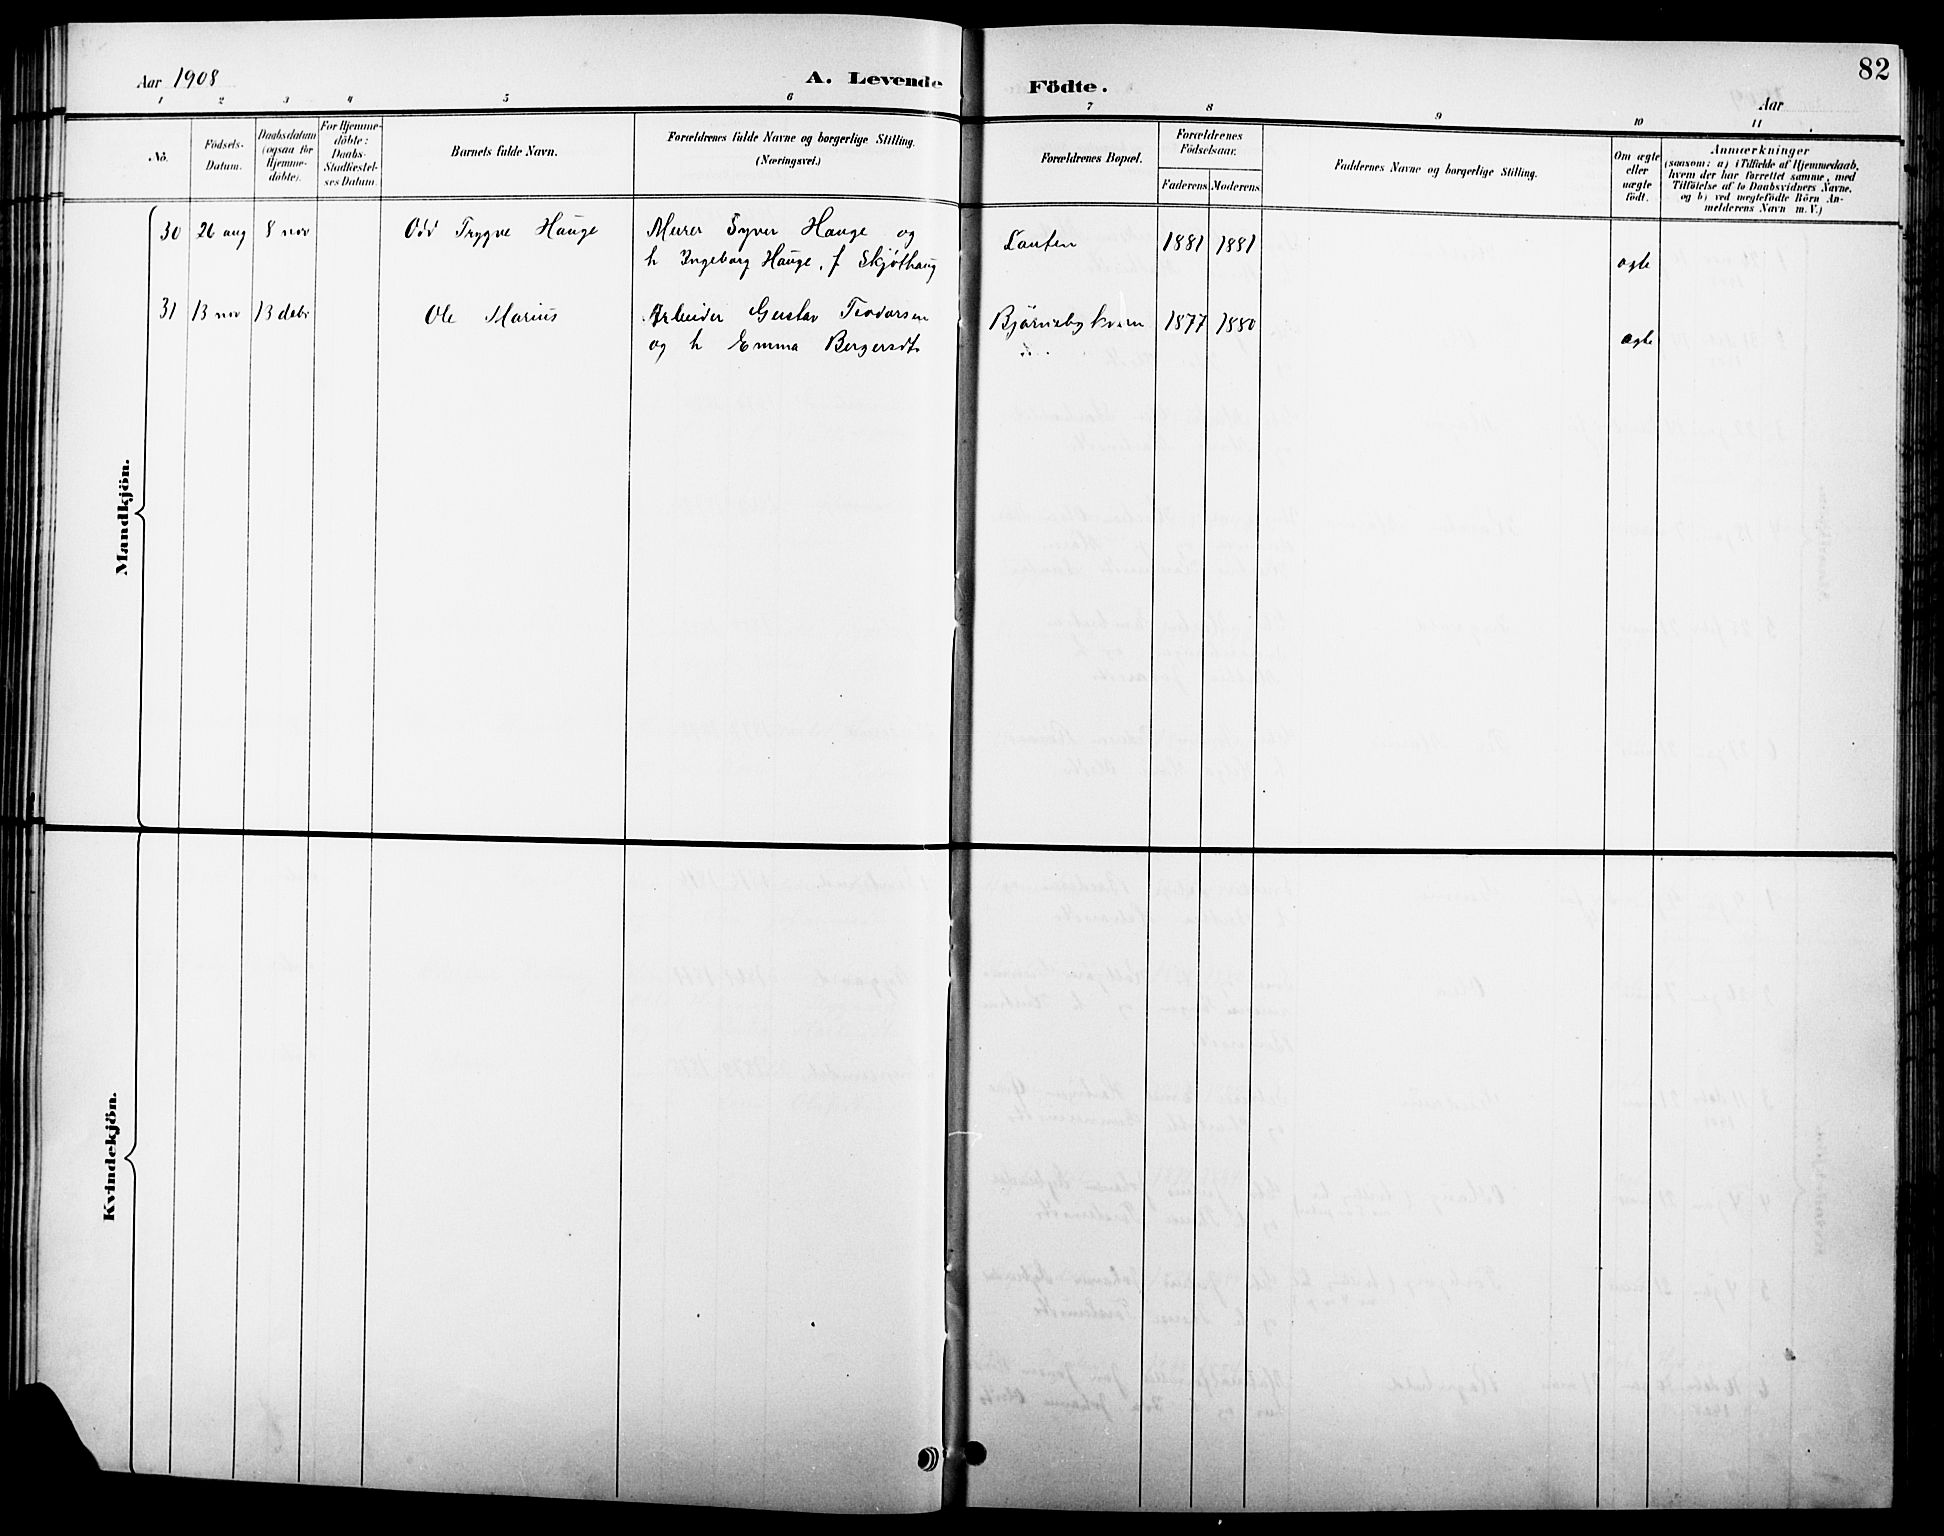 Aar 1908
A. Levende Födte.
82
Aar
1 2 3 4 5 6 7 8 9 10 11
No.
Födsels-
Datum.
Daabsdatum
(ogsaa for
Hjemme-
döbte).
For Hjemme-
döbte:
Daabs-
Stadfæstel-
ses Datum.
Barnets fulde Navn.
Forældrenes fulde Navne og borgerlige Stilling.
(Næringsvei.)
Forældrenes Bopæl.
Forældrenes
Födselsaar.
Faderens Moderens
Faddernes Navne og borgerlige Stilling.
Om ægte
eller
uægte
født.
Anmærkninger
(saasom: a) i Tilfælde af Hjemmedaab,
hvem der har forrettet samme, med
Tilföielse af to Daabsvidners Navne.
og b) ved uægtefödte Börn An-
melderens Navn m. V.)
Mandkjön.
30 26 aug 8 nov Odd Trygve Hauge Murer Syver Hauge og Løuten 1881 1881
h Ingeborg Hauge, f Skjøthaug ægte
31 13 nov 13 debr Ole Marius Arbeider Gustav Teodorsen Bjørnebykvern 1877 1880
og h Emma Bergersdt ægte
Kvindekjön.